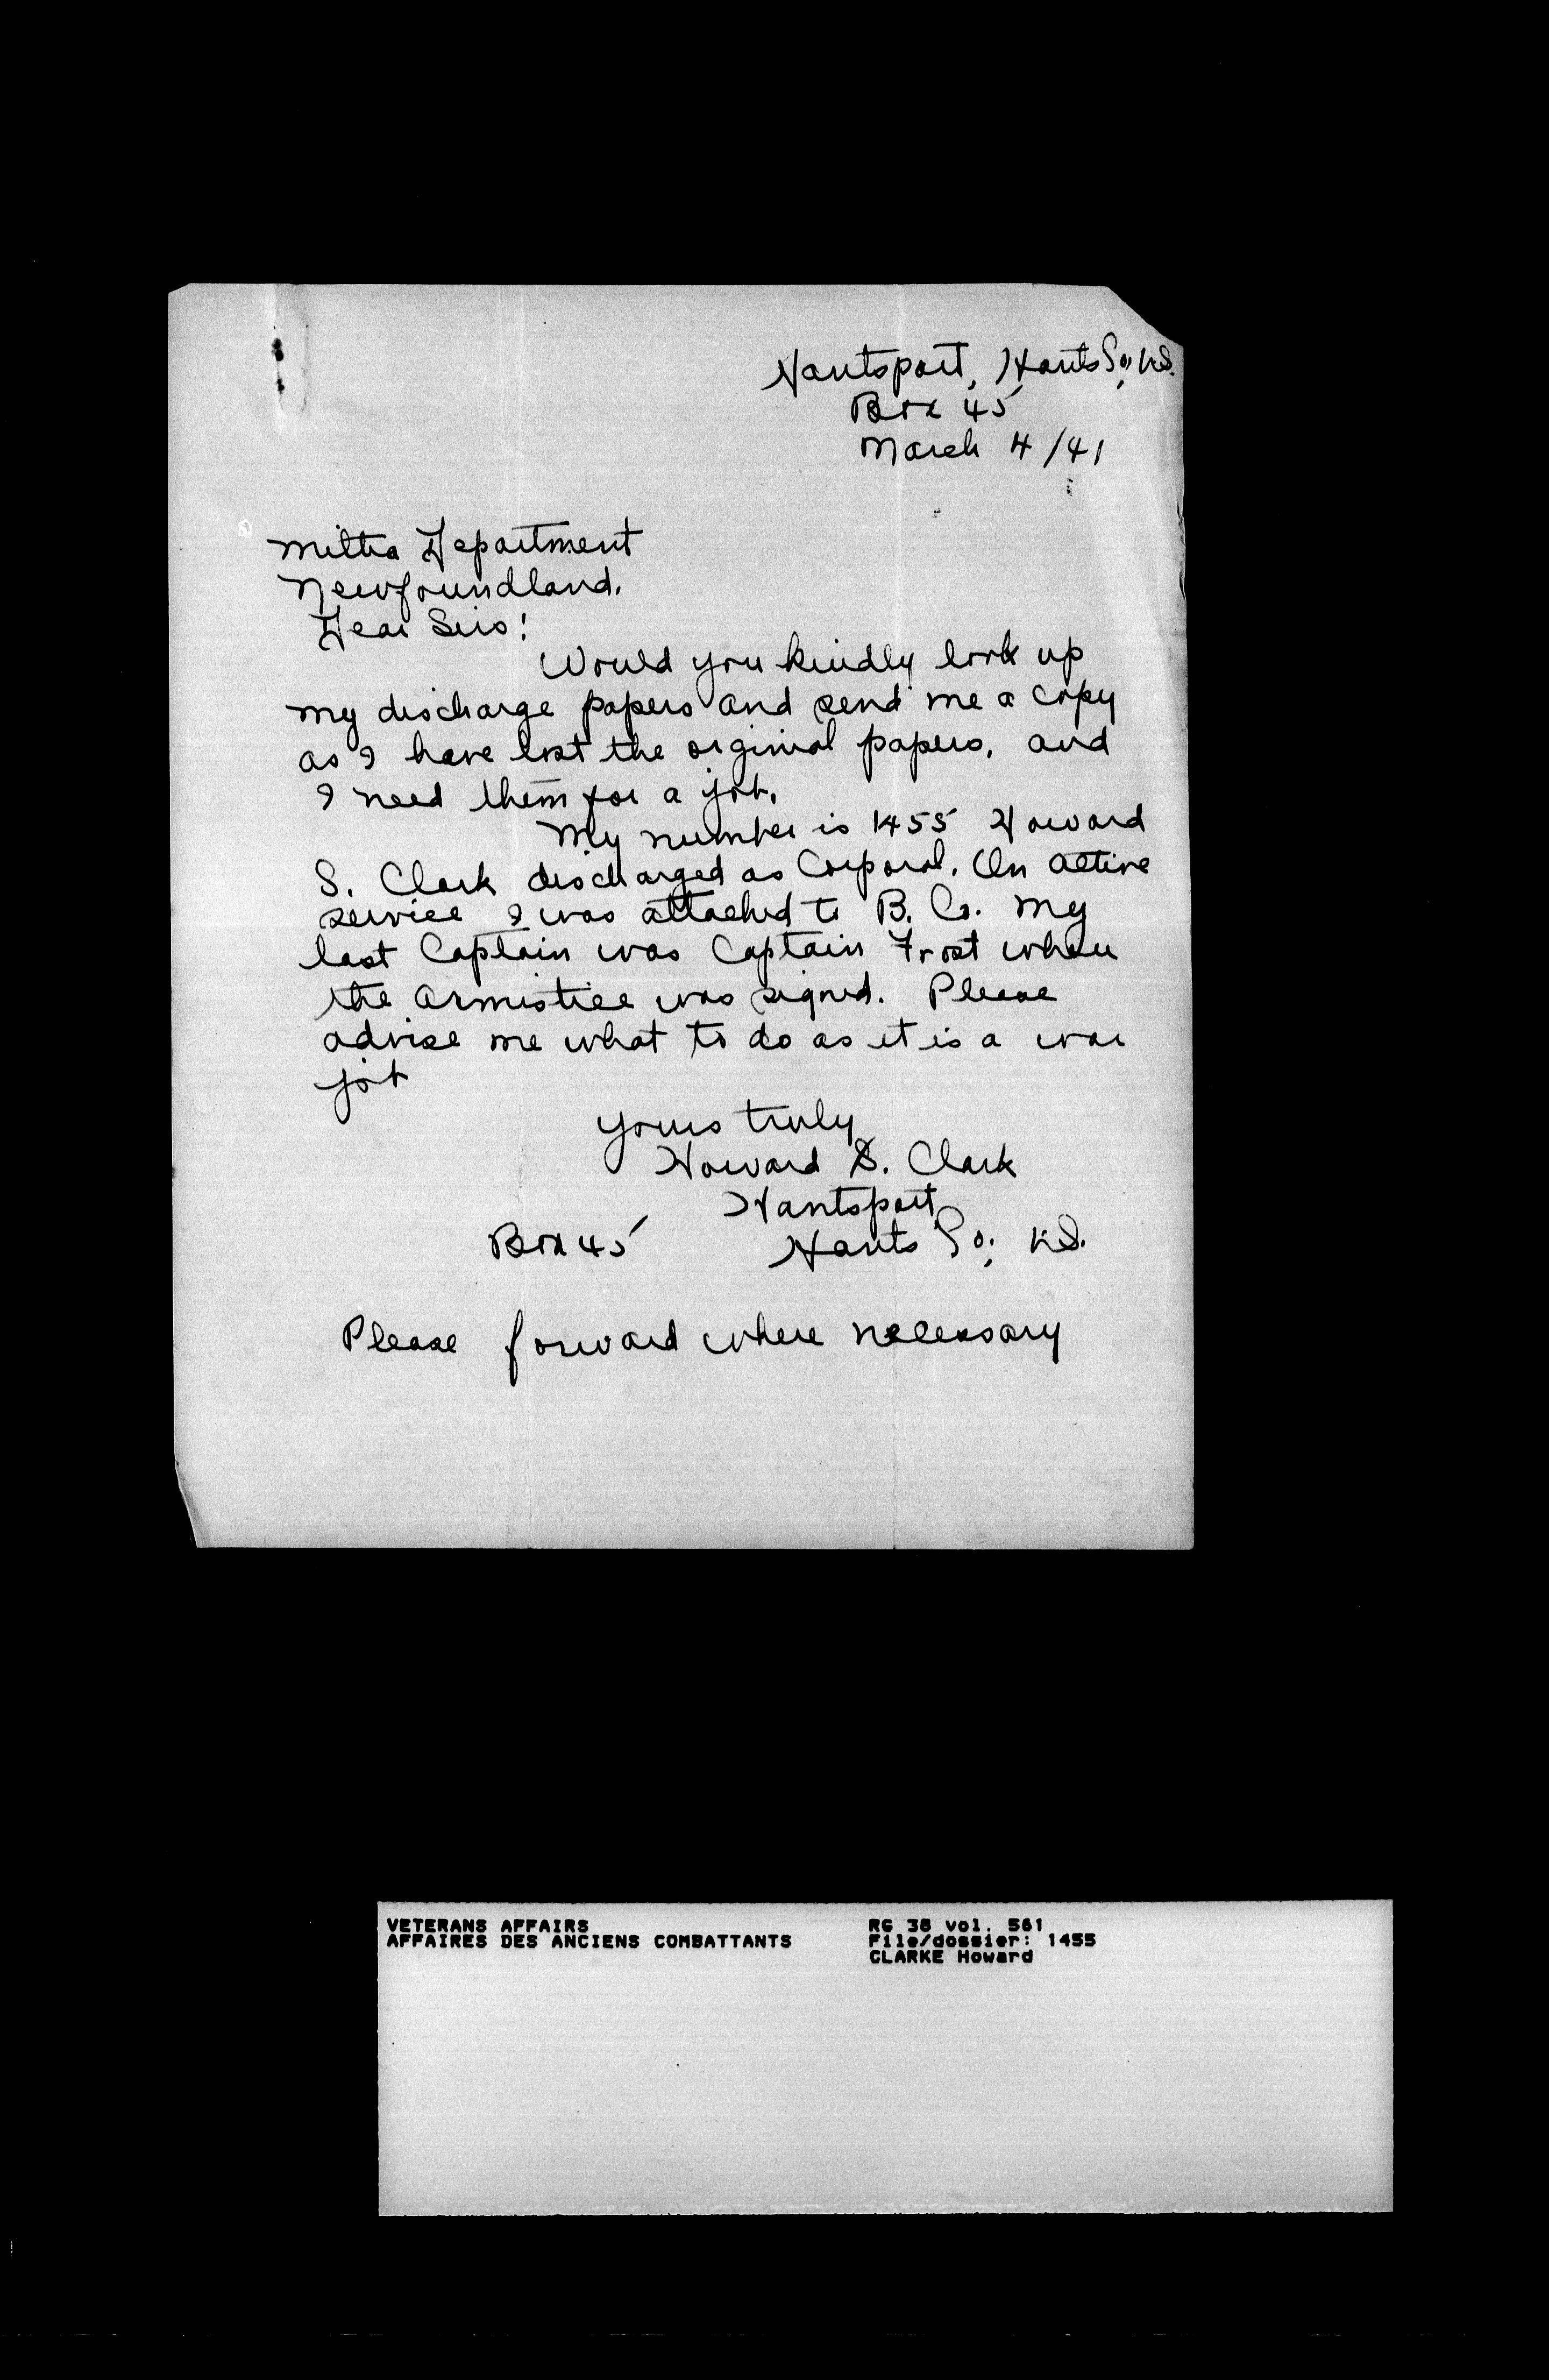 Hantsport, Hants Co; N.S.
Box 45
March 4/41
Militia Department
Newfoundland.
Dear Sirs!
Would you kindly look up
my discharge papers and send me a copy
as I have lost the orginial papers, and
I need them for a job.
My number is 1455 Howard
S. Clark discharged as Corporal. On active
service I was attached to B. Co. My
last Captain was Captain Frost when
the armistice was signed. Please
advise me what to do as it is a war
job
Yours truly
Howard S. Clark
Hantsport
Box 45 Hants Co; N.S.
Please forward where necessary
VETERANS AFFAIRS RG 38 vol. 561
AFFAIRES DES ANCIENS COMBATTANTS File/dossier: 1455
CLARKE Howard